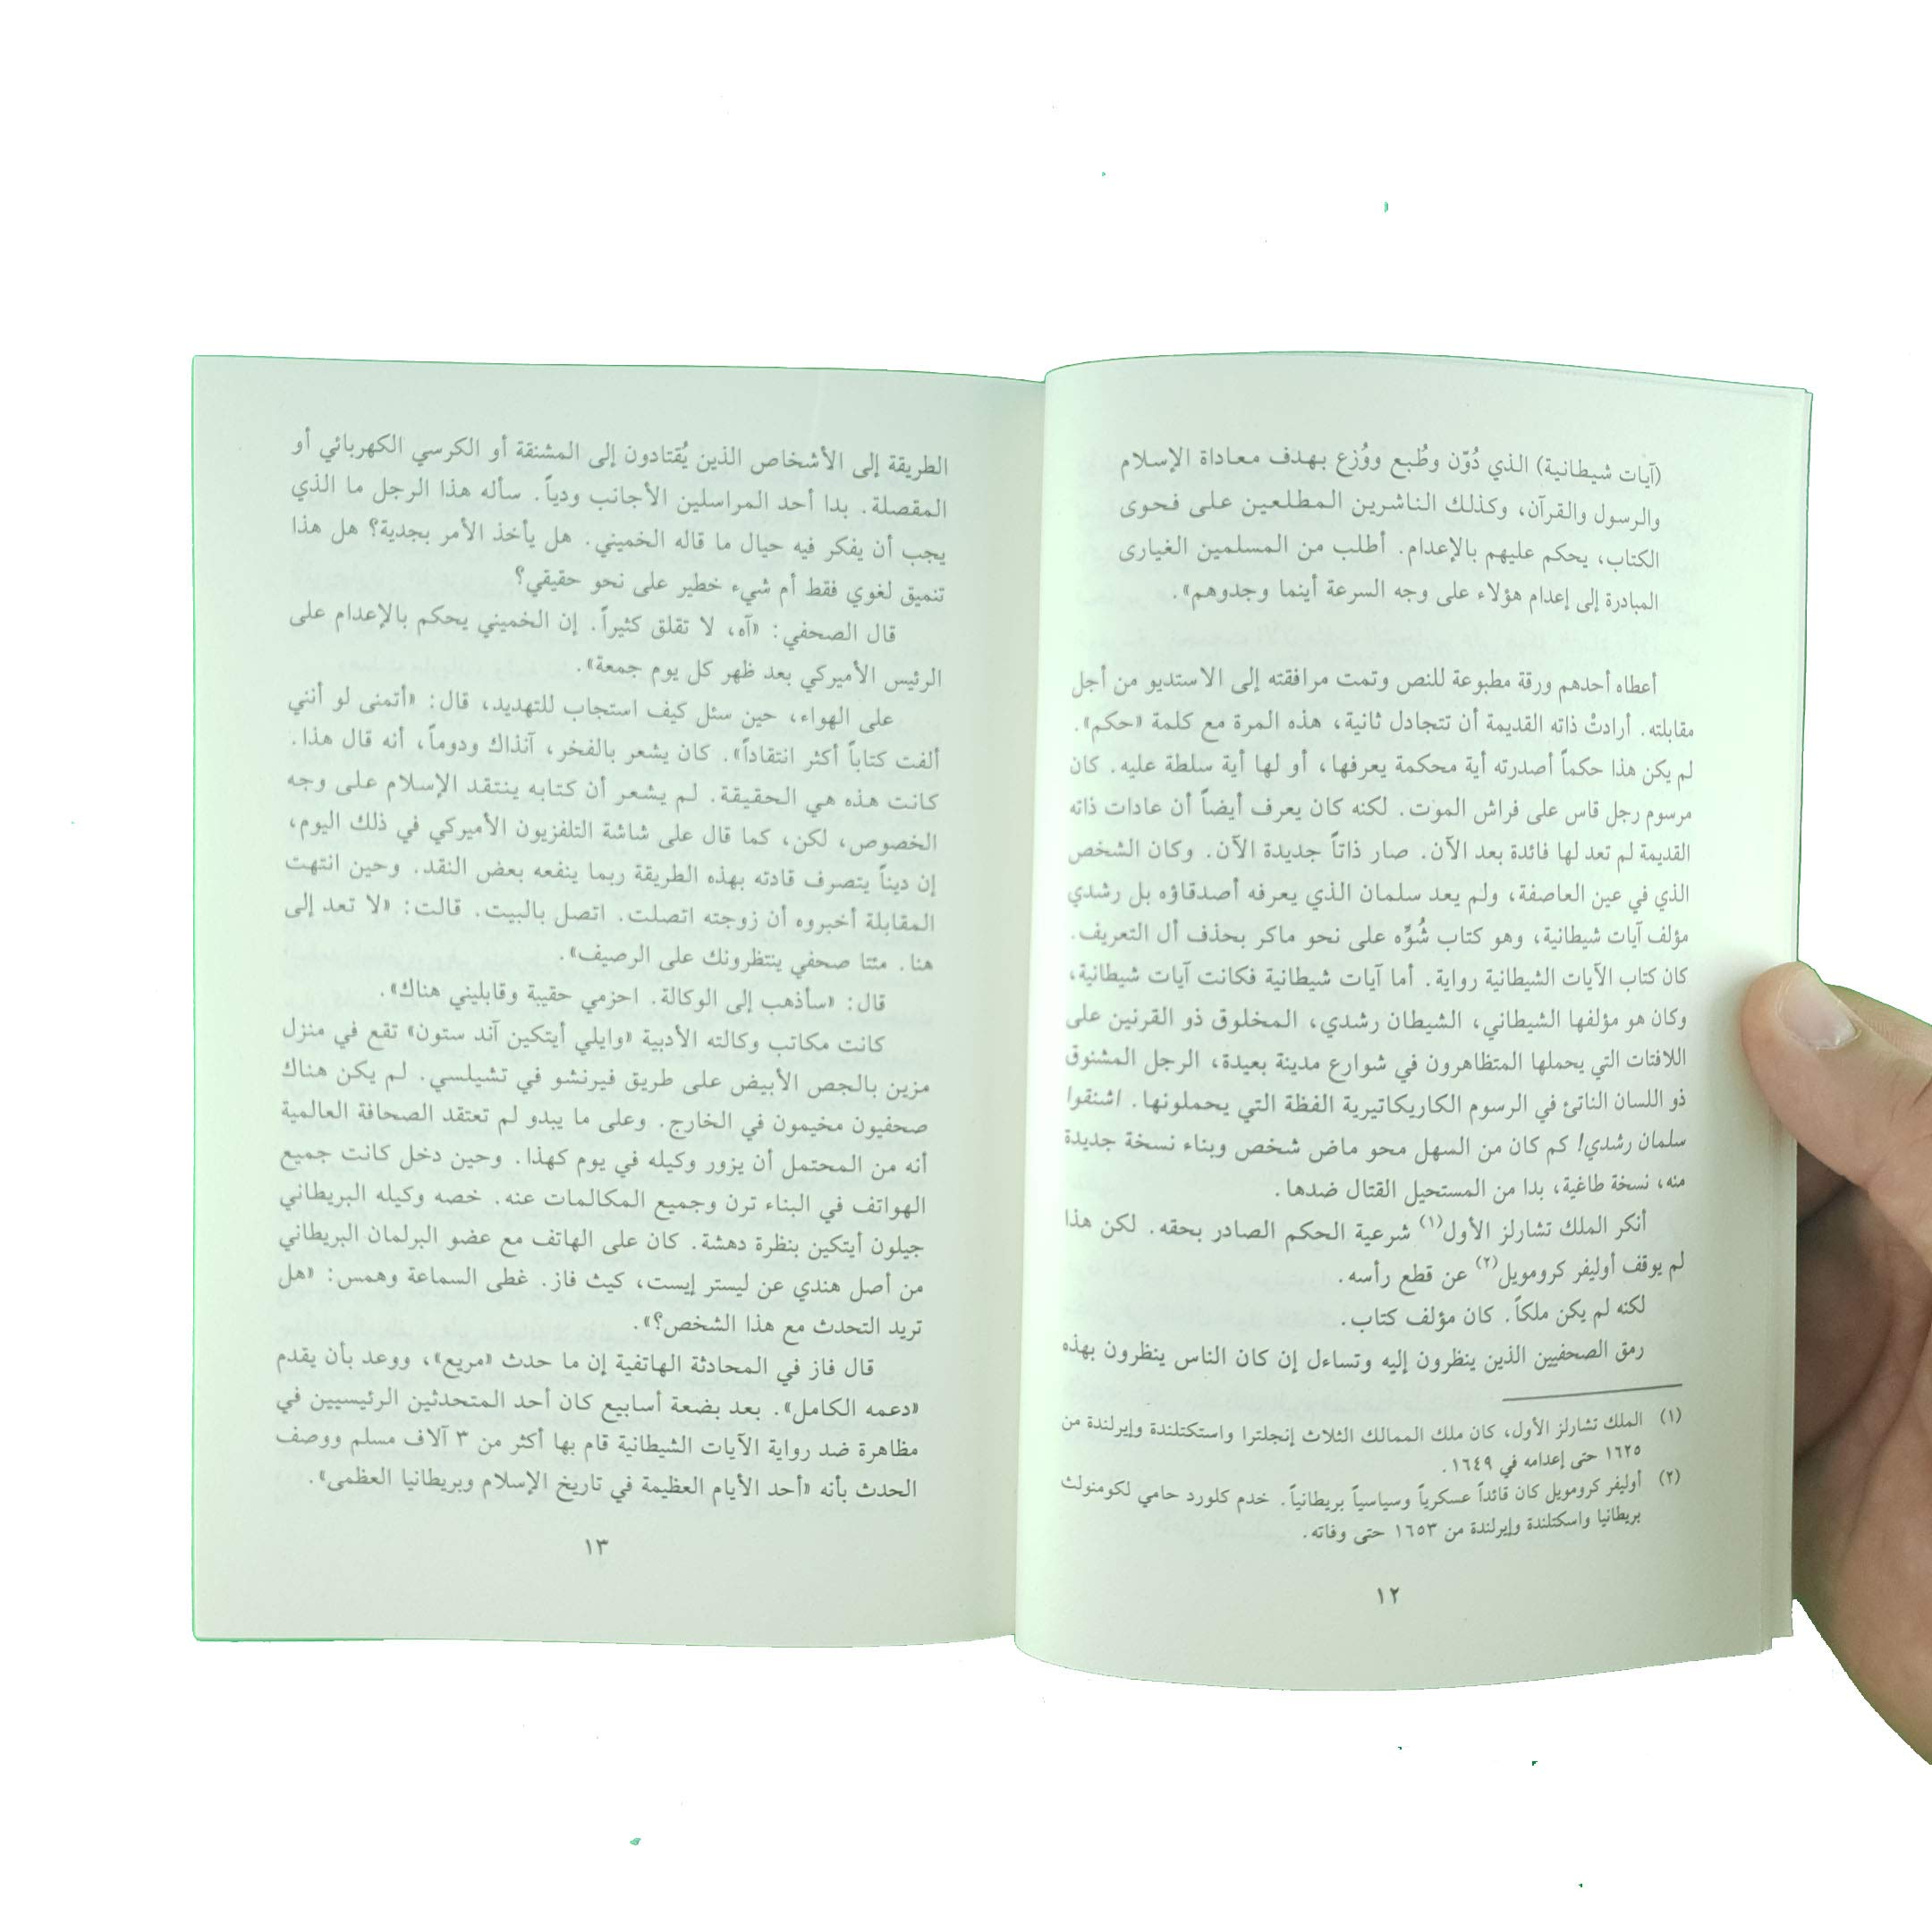 (آيات شيطانية) الذي دُوّن وطُبع ووُزع بهدف معاداة الإسلام
والرسول والقرآن، وكذلك الناشرين المطلعين على فحوى
الكتاب، يحكم عليهم بالإعدام. أطلب من المسلمين الغيارى
المبادرة إلى إعدام هؤلاء على وجه السرعة أينما وجدوهم».
أعطاه أحدهم ورقة مطبوعة للنص وتمت مرافقته إلى الاستديو من أجل
مقابلته. أرادتْ ذاته القديمة أن تتجادل ثانية، هذه المرة مع كلمة «حكم».
لم يكن هذا حكماً أصدرته أية محكمة يعرفها، أو لها أية سلطة عليه. كان
مرسوم رجل قاس على فراش الموت. لكنه كان يعرف أيضاً أن عادات ذاته
القديمة لم تعد لها فائدة بعد الآن. صار ذاتاً جديدة الآن. وكان الشخص
الذي في عين العاصفة، ولم يعد سلمان الذي يعرفه أصدقاؤه بل رشدي
مؤلف آيات شيطانية، وهو كتاب شُوِّه على نحو ماكر بحذف أل التعريف.
كان كتاب الآيات الشيطانية رواية. أما آيات شيطانية فكانت آيات شيطانية،
وكان هو مؤلفها الشيطاني، الشيطان رشدي، المخلوق ذو القرنين على
اللافتات التي يحملها المتظاهرون في شوارع مدينة بعيدة، الرجل المشنوق
ذو اللسان الناتئ في الرسوم الكاريكاتيرية الفظة التي يحملونها. اشنقوا
سلمان رشدي! كم كان من السهل محو ماض شخص وبناء نسخة جديدة
منه، نسخة طاغية، بدا من المستحيل القتال ضدها.
أنكر الملك تشارلز الأول(١) شرعية الحكم الصادر بحقه. لكن هذا
لم يوقف أوليفر كرومويل(٢) عن قطع رأسه.
لكنه لم يكن ملكاً. كان مؤلف كتاب.
رمق الصحفيين الذين ينظرون إليه وتساءل إن كان الناس ينظرون بهذه
(١) الملك تشارلز الأول، كان ملك الممالك الثلاث إنجلترا واستكتلندة وإيرلندة من
١٦٢٥ حتى إعدامه في ١٦٤٩.
(٢) أوليفر كرومويل كان قائداً عسكرياً وسياسياً بريطانياً. خدم كلورد حامي لكومنولث
بريطانيا واسكتلندة وإيرلندة من ١٦٥٣ حتى وفاته.
١٢
الطريقة إلى الأشخاص الذين يُقتادون إلى المشنقة أو الكرسي الكهربائي أو
المقصلة. بدا أحد المراسلين الأجانب ودياً. سأله هذا الرجل ما الذي
يجب أن يفكر فيه حيال ما قاله الخميني. هل يأخذ الأمر بجدية؟ هل هذا
تنميق لغوي فقط أم شيء خطير على نحو حقيقي؟
قال الصحفي: «آه، لا تقلق كثيراً. إن الخميني يحكم بالإعدام على
الرئيس الأميركي بعد ظهر كل يوم جمعة».
على الهواء، حين سئل كيف استجاب للتهديد، قال: «أتمنى لو أنني
ألفت كتاباً أكثر انتقاداً». كان يشعر بالفخر، آنذاك ودوماً، أنه قال هذا.
كانت هذه هي الحقيقة. لم يشعر أن كتابه ينتقد الإسلام على وجه
الخصوص، لكن، كما قال على شاشة التلفزيون الأميركي في ذلك اليوم،
إن ديناً يتصرف قادته بهذه الطريقة ربما ينفعه بعض النقد. وحين انتهت
المقابلة أخبروه أن زوجته اتصلت. اتصل بالبيت. قالت: «لا تعد إلى
هنا. مئتا صحفي ينتظرونك على الرصيف».
قال: «سأذهب إلى الوكالة. احزمي حقيبة وقابليني هناك».
كانت مكاتب وكالته الأدبية «وايلي أيتكين آند ستون» تقع في منزل
مزين بالجص الأبيض على طريق فيرنشو في تشيلسي. لم يكن هناك
صحفيون مخيمون في الخارج. وعلى ما يبدو لم تعتقد الصحافة العالمية
أنه من المحتمل أن يزور وكيله في يوم كهذا. وحين دخل كانت جميع
الهواتف في البناء ترن وجميع المكالمات عنه. خصه وكيله البريطاني
جيلون أيتكين بنظرة دهشة. كان على الهاتف مع عضو البرلمان البريطاني
من أصل هندي عن ليستر إيست، كيث فاز. غطى السماعة وهمس: «هل
تريد التحدث مع هذا الشخص؟».
قال فاز في المحادثة الهاتفية إن ما حدث «مريع»، ووعد بأن يقدم
«دعمه الكامل». بعد بضعة أسابيع كان أحد المتحدثين الرئيسيين في
مظاهرة ضد رواية الآيات الشيطانية قام بها أكثر من ٣ آلاف مسلم ووصف
الحدث بأنه «أحد الأيام العظيمة في تاريخ الإسلام وبريطانيا العظمى».
١٣